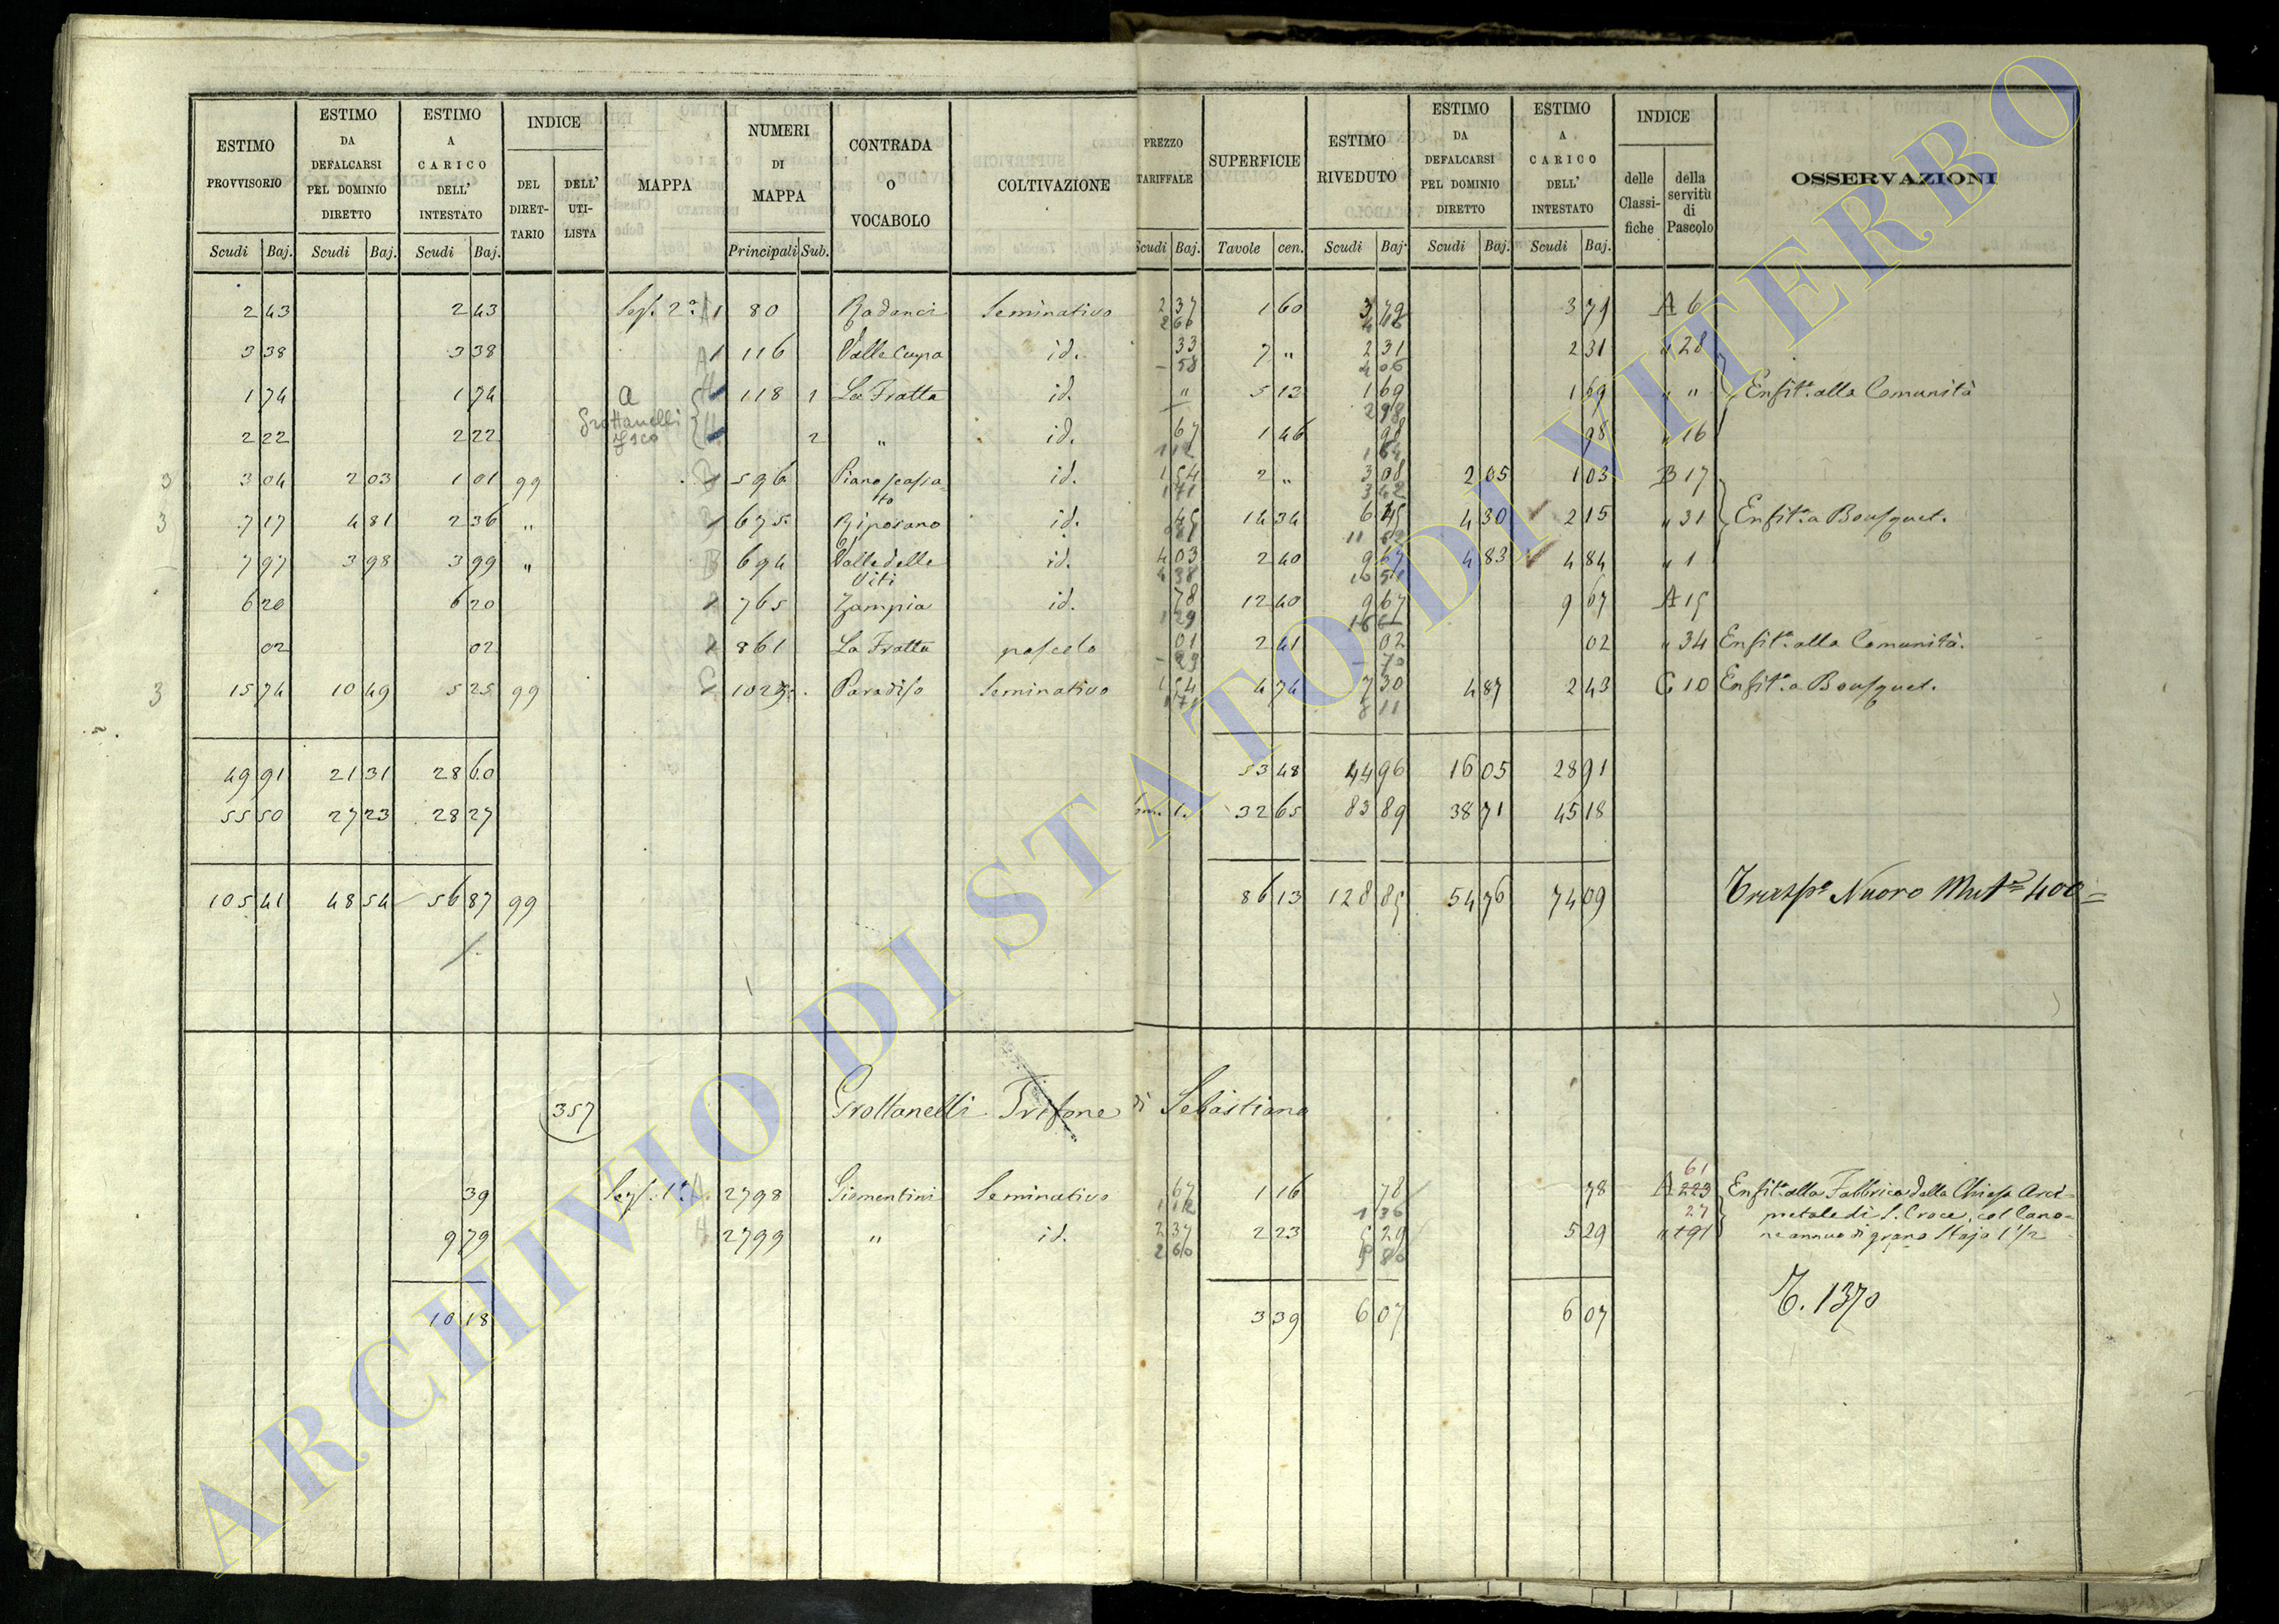 ESTIMO PROVVISORIO | ESTIMO DA DEFALCARSI PEL DOMINIO DIRETTO | ESTIMO A CARICO DELL' INTESTATO | INDICE | MAPPA | NUMERI DI MAPPA | CONTRADA O VOCABOLO | COLTIVAZIONE | PREZZO TARIFFALE | SUPERFICIE | ESTIMO RIVEDUTO | ESTIMO DA DEFALCARSI PEL DOMINIO DIRETTO | ESTIMO A CARICO DELL' INTESTATO | INDICE | OSSERVAZIONI
DEL DIRETTARIO | DELL' UTILISTA | delle Classifiche | della servitù di Pascolo
Scudi Baj. | Scudi Baj. | Scudi Baj. | Principali Sub. | Scudi Baj. | Tavole cen. | Scudi Baj. | Scudi Baj. | Scudi Baj.
2 43 | 2 43 | Sez. 2a | 1 | 80 | Radanci | Seminativo | 2 37 | 1 60 | 3 79 | 3 79 | A 6
2 60
3 38 | 3 38 | 1 | 116 | Valle Cupa | id. | 33 | 7 " | 2 31 | 2 31 | " 28
58 | 4 06
1 74 | 1 74 | a | 118 | 1 | La Fratta | id. | " | 5 13 | 1 69 | 1 69 | " " | Enfita. alla Comunità
Grottanelli | 2 98
2 22 | 2 22 | 2 | " | id. | 67 | 1 46 | 98 | 98 | " 16
1 12 | 1 64
3 | 3 04 | 2 03 | 1 01 | 99 | B | 596 | Piano scassato | id. | 1 54 | 2 " | 3 08 | 2 05 | 1 03 | B 17
1 71 | 3 42
3 | 7 17 | 4 81 | 2 36 | " | 675 | Riposano | id. | 45 | 14 34 | 6 45 | 4 30 | 2 15 | " 31 | Enfita. a Bousquet.
7 97 | 3 98 | 3 99 | " | B | 694 | Valle delle Viti | id. | 4 03 | 2 40 | 9 67 | 4 83 | 4 84 | " 1
4 38 | 10 51
6 20 | 6 20 | 765 | Zampia | id. | 78 | 12 40 | 9 67 | 9 67 | A 15
1 29
02 | 02 | 861 | La Fratta | pascolo | 01 | 2 41 | 02 | 02 | " 34 | Enfita. alla Comunità.
29 | 70
3 | 15 74 | 10 49 | 5 25 | 99 | C | 1029 | Paradiso | Seminativo | 1 54 | 4 74 | 7 30 | 4 87 | 2 43 | C 10 | Enfita. a Bousquet.
1 71 | 8 11
49 91 | 21 31 | 28 60 | 53 48 | 44 96 | 16 05 | 28 91
55 50 | 27 23 | 28 27 | 32 65 | 83 89 | 38 71 | 45 18
105 41 | 48 54 | 56 87 | 99 | 86 13 | 128 85 | 54 76 | 74 09 | Nuovo 400
357 | Grottanelli Trifone di Sebastiano
39 | Sez. 1a A | 2798 | Clementini | Seminativo | 67 | 1 16 | 78 | 78 | A 223 61 | Enfita. alla Fabbrica della Chiesa Arci=
1 12 | 1 36 | 27 | pretale di S. Croce, col Cano=
9 79 | 2799 | " | id. | 2 37 | 2 23 | 5 29 | 5 29 | " 191 | ne annuo di grano Staja 1 1/2
2 60 | 5 80
10 18 | 3 39 | 6 07 | 6 07 | T. 1370
ARCHIVIO DI STATO DI VITERBO